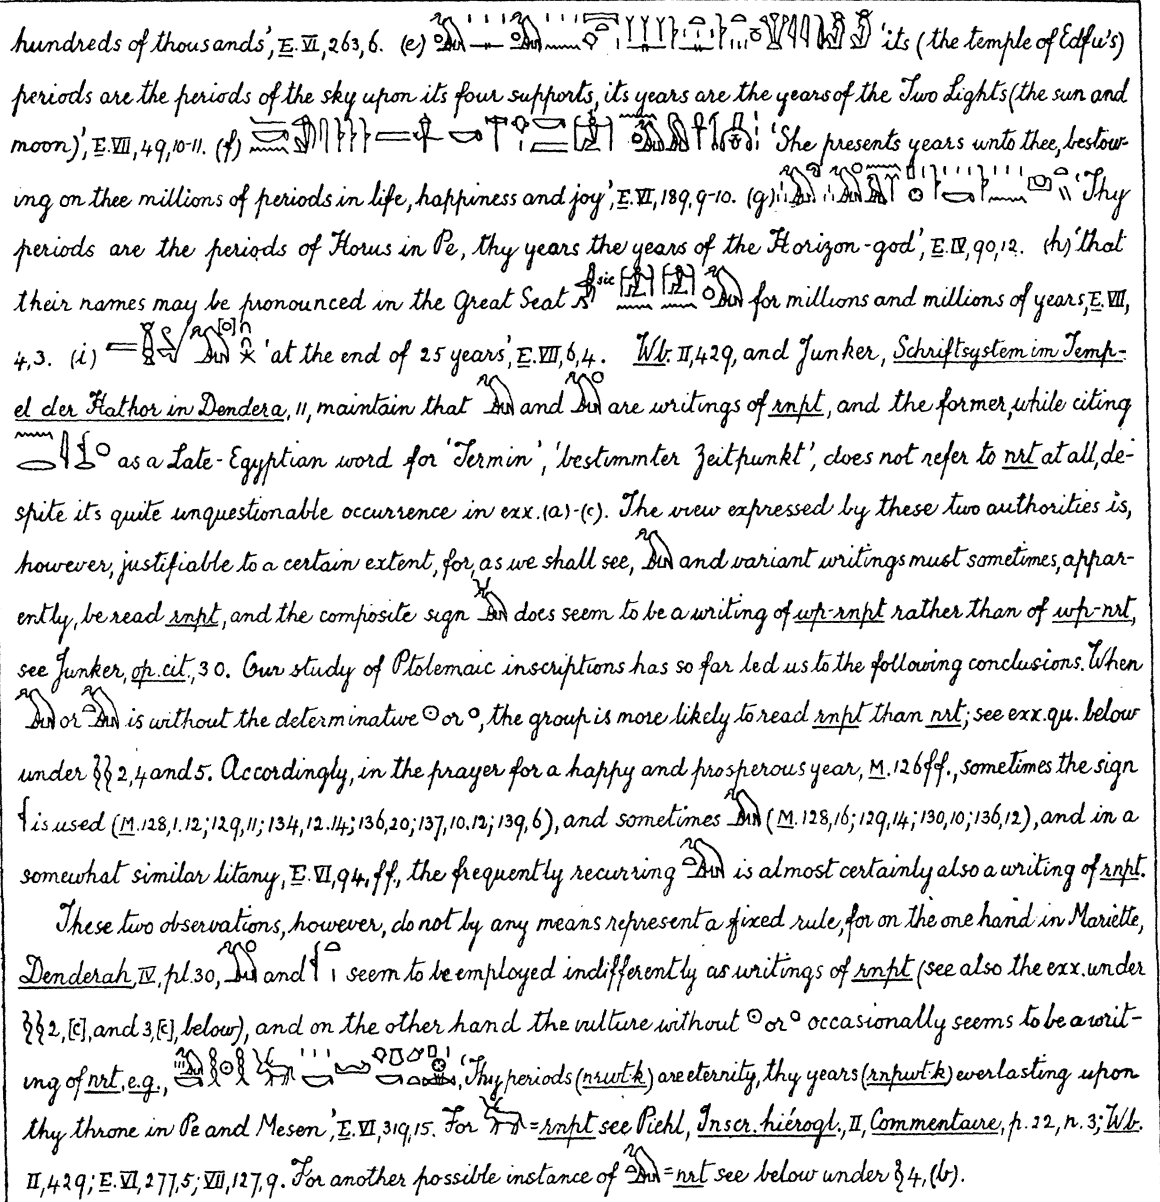 hundreds of thousands', E. VI, 263, 6. (e) 'its (the temple of Edfu's)
periods are the periods of the sky upon its four supports, its years are the years of the Two Lights (the sun and
moon)', E. VII, 49, 10-11. (f) 'She presents years unto thee, bestow-
ing on thee millions of periods in life, happiness and joy', E. VI, 189, 9-10. (g) 'Thy
periods are the periods of Horus in Pe, thy years the years of the Horizon-god', E. IV, 90, 12. (h) 'that
their names may be pronounced in the Great Seat sic for millions and millions of years, E. VII,
4, 3. (i) 'at the end of 25 years', E. VII, 6, 4. Wb. II, 429, and Junker, Schriftsystem im Temp-
el der Hathor in Dendera, 11, maintain that and are writings of rnpt, and the former, while citing
as a Late-Egyptian word for 'Termin', 'bestimmter Zeitpunkt', does not refer to nrt at all, de-
spite its quite unquestionable occurrence in exx. (a)-(c). The view expressed by these two authorities is,
however, justifiable to a certain extent, for, as we shall see, and variant writings must sometimes, appar-
ently, be read rnpt, and the composite sign does seem to be a writing of wp-rnpt rather than of wp-nrt,
see Junker, op. cit., 30. Our study of Ptolemaic inscriptions has so far led us to the following conclusions. When
or is without the determinative ☉ or o, the group is more likely to read rnpt than nrt; see exx. qu. below
under §§ 2, 4 and 5. Accordingly, in the prayer for a happy and prosperous year, M. 126 ff., sometimes the sign
is used (M. 128, 1. 12; 129, 11; 134, 12. 14; 136, 20; 137, 10. 12; 139, 6), and sometimes (M. 128, 16; 129, 14; 130, 10; 136, 12), and in a
somewhat similar litany, E. VI, 94, ff., the frequently recurring is almost certainly also a writing of rnpt.
These two observations, however, do not by any means represent a fixed rule, for on the one hand in Mariette,
Denderah, IV, pl. 30, and seem to be employed indifferently as writings of rnpt (see also the exx. under
§§ 2, [c], and 3, [c], below), and on the other hand the vulture without ☉ or o occasionally seems to be a writ-
ing of nrt, e.g., 'Thy periods (nrwt·k) are eternity, thy years (rnpwt·k) everlasting upon
thy throne in Pe and Mesen', E. VI, 319, 15. For = rnpt see Piehl, Inscr. hiérogl., II, Commentaire, p. 22, n. 3; Wb.
II, 429; E. VI, 277, 5; VII, 127, 9. For another possible instance of = nrt see below under § 4, (b).